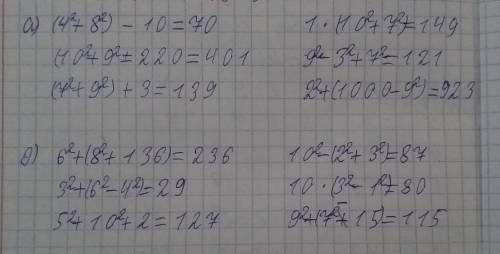 а) (4²+8²) - 10 = 70
(10²+9²)+220=401
(7²+9²)+3=139
1·(10²+7²)=149
9²-3²+7²=121
2²+(1000-9²)=923
в) 6²+(8²+136)=236
3²+(6²-4²)=29
5²+10²+2=127
10²-(2²+3²)=87
10·(3²-1²)=80